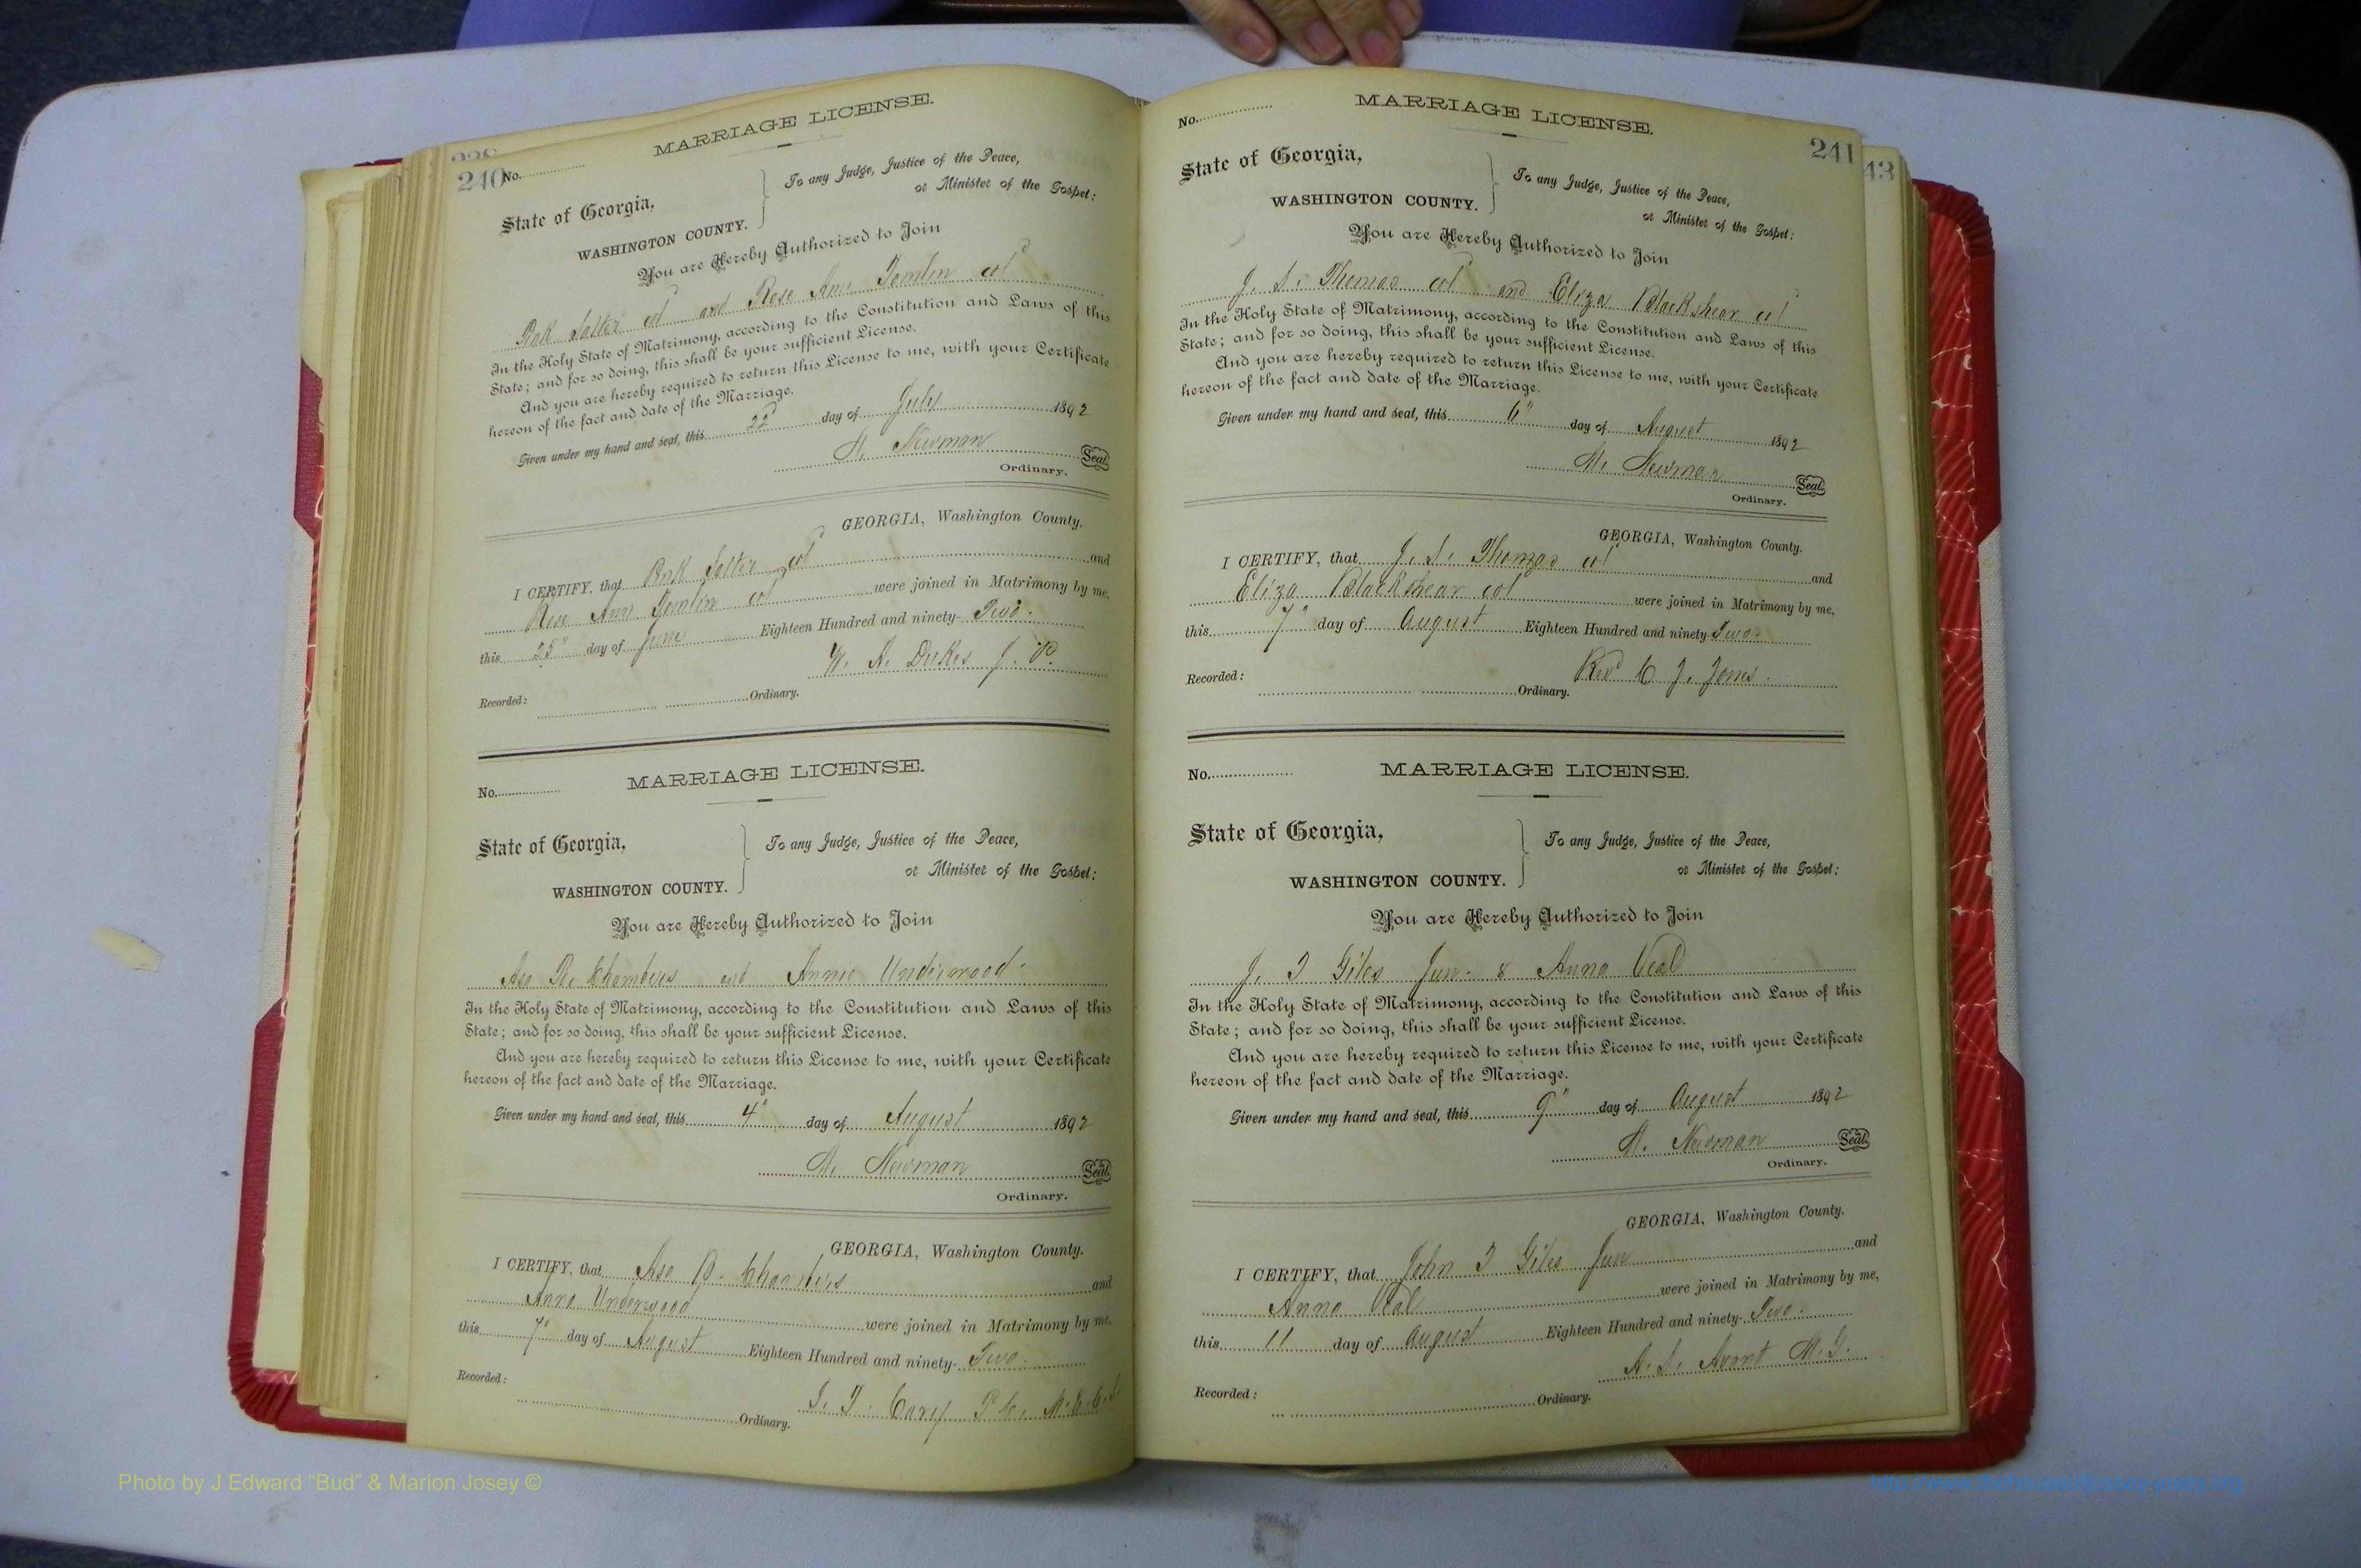 240
No.
MARRIAGE LICENSE.
State of Georgia,
WASHINGTON COUNTY.
To any Judge, Justice of the Peace,
or Minister of the Gospel:
You are Hereby Authorized to Join
Salter col and Rose Ann Tomlin col
In the Holy State of Matrimony, according to the Constitution and Laws of this
State; and for so doing, this shall be your sufficient License.
And you are hereby required to return this License to me, with your Certificate
hereon of the fact and date of the Marriage.
Given under my hand and seal, this 22 day of July 1892
M. Newman Seal.
Ordinary.
GEORGIA, Washington County.
I CERTIFY, that Salter col and
Rose Ann Tomlin col were joined in Matrimony by me,
this 25" day of June Eighteen Hundred and ninety- Two.
Dukes J. P.
Recorded: Ordinary.
No.
MARRIAGE LICENSE.
State of Georgia,
WASHINGTON COUNTY.
To any Judge, Justice of the Peace,
or Minister of the Gospel:
You are Hereby Authorized to Join
Asa Chambers and Annie Underwood.
In the Holy State of Matrimony, according to the Constitution and Laws of this
State; and for so doing, this shall be your sufficient License.
And you are hereby required to return this License to me, with your Certificate
hereon of the fact and date of the Marriage.
Given under my hand and seal, this 4" day of August 1892
M. Newman Seal.
Ordinary.
GEORGIA, Washington County.
I CERTIFY, that Asa Chambers and
Anna Underwood were joined in Matrimony by me,
this 7" day of August Eighteen Hundred and ninety- Two.
Cary
Recorded: Ordinary.
241
43
No.
MARRIAGE LICENSE.
State of Georgia,
WASHINGTON COUNTY.
To any Judge, Justice of the Peace,
or Minister of the Gospel:
You are Hereby Authorized to Join
J. S. Thomas col and Eliza Blackshear col
In the Holy State of Matrimony, according to the Constitution and Laws of this
State; and for so doing, this shall be your sufficient License.
And you are hereby required to return this License to me, with your Certificate
hereon of the fact and date of the Marriage.
Given under my hand and seal, this 6" day of August 1892
M. Newman Seal.
Ordinary.
GEORGIA, Washington County.
I CERTIFY, that J. S. Thomas col and
Eliza Blackshear col were joined in Matrimony by me,
this 7" day of August Eighteen Hundred and ninety- Two.
Revd C J. Jones.
Recorded: Ordinary.
No.
MARRIAGE LICENSE.
State of Georgia,
WASHINGTON COUNTY.
To any Judge, Justice of the Peace,
or Minister of the Gospel:
You are Hereby Authorized to Join
J. T Giles Jun. & Anna Veal
In the Holy State of Matrimony, according to the Constitution and Laws of this
State; and for so doing, this shall be your sufficient License.
And you are hereby required to return this License to me, with your Certificate
hereon of the fact and date of the Marriage.
Given under my hand and seal, this 9" day of August 1892
M. Newman Seal.
Ordinary.
GEORGIA, Washington County.
I CERTIFY, that John T Giles Jun and
Anna Veal were joined in Matrimony by me,
this 11 day of August Eighteen Hundred and ninety- Two.
A. S. Avant M. G.
Recorded: Ordinary.
Photo by J Edward “Bud” & Marion Josey ©